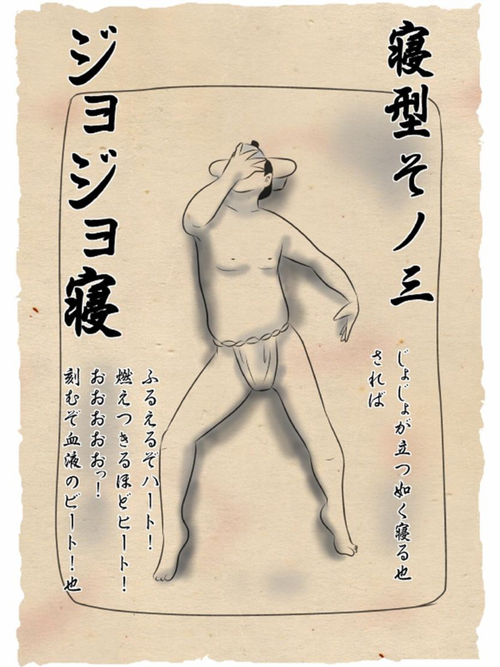 寝型そノ三
じょじょが立つ如く寝る也
されば
ふるえるぞハート!
燃えつきるほどヒート!
おおおおおっ!
刻むぞ血液のビート!也
ジョジョ寝